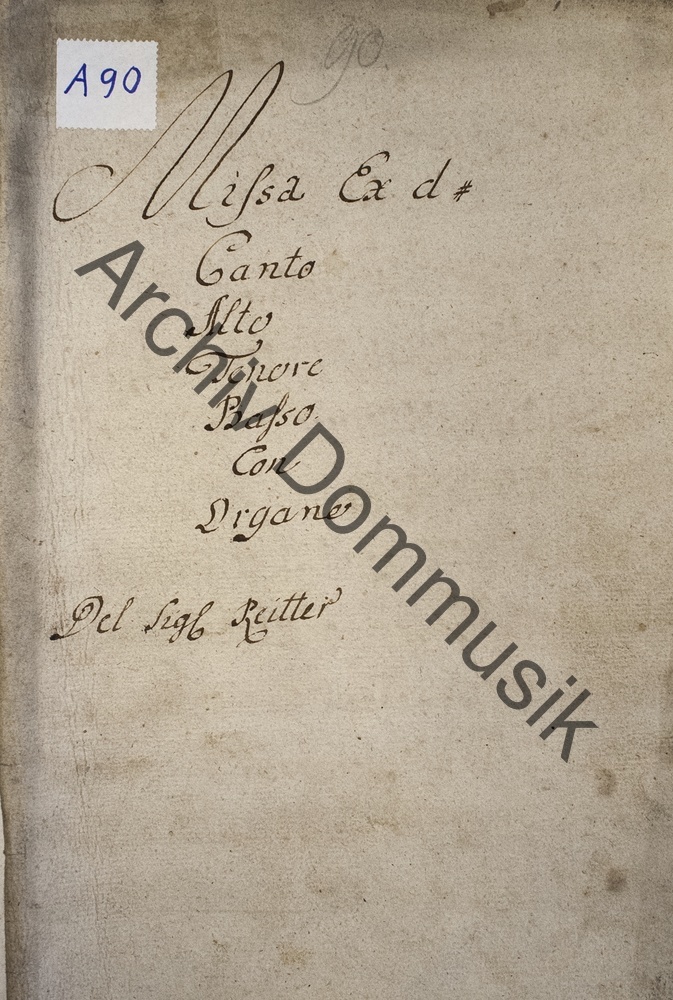 90.
A 90
Miſsa Ex d#
Canto
Alto
Tenore
Baſso
Con
Organo
Del Sigl Reitter
Archiv Dommusik